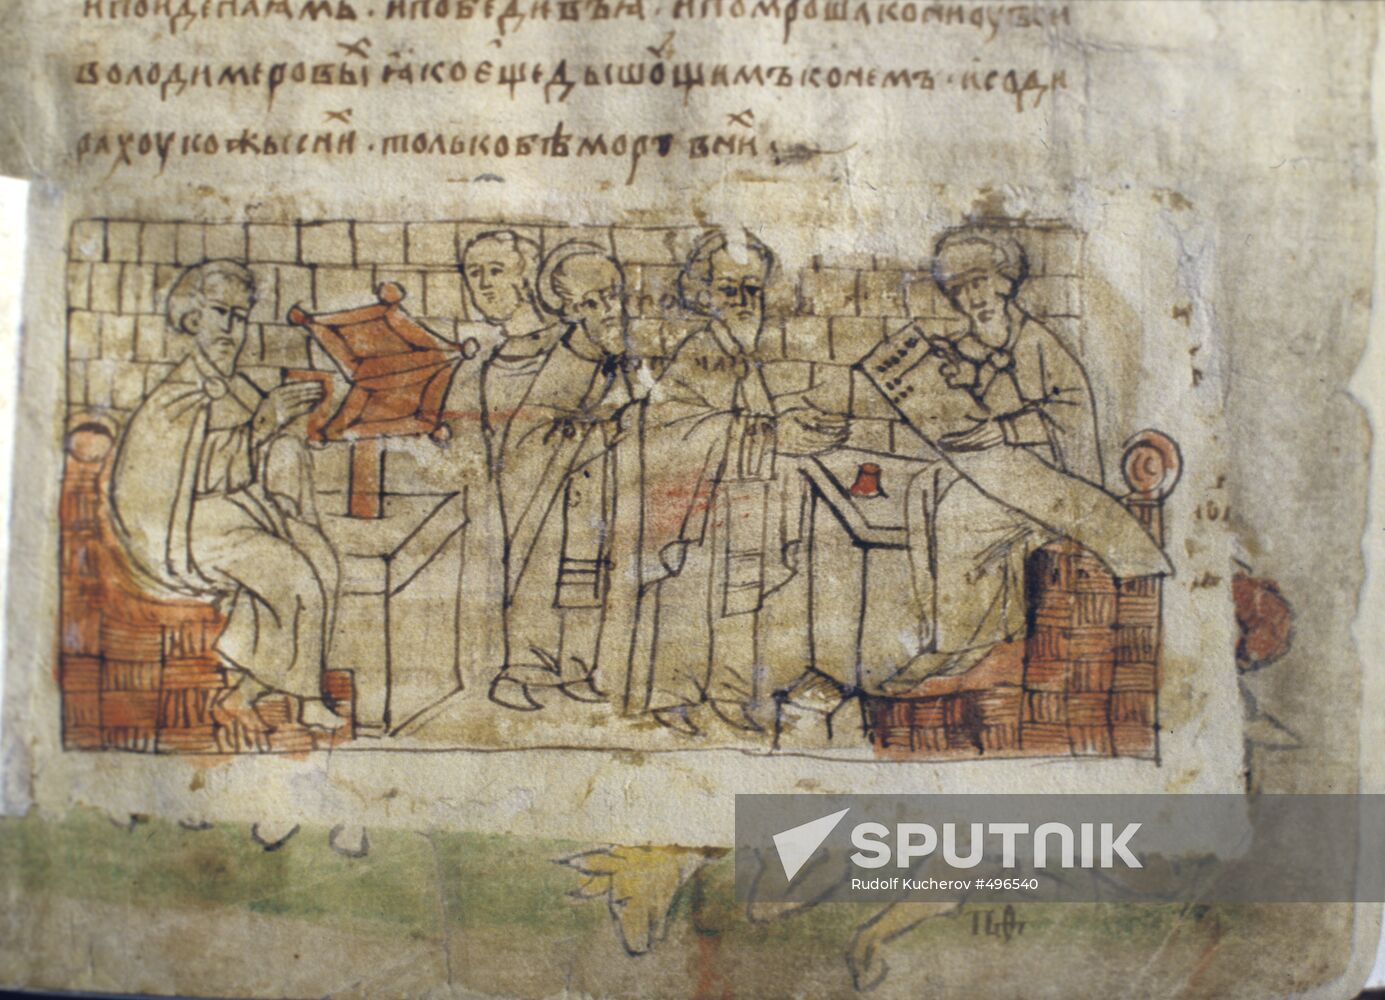 и поиде на ѧмь · и победивъ ѧ · и помроша кони оу вои
володимеровы͒ ꙗко є̂ще дышющимъ конемъ · и соди
рахоу кожы с ни͒ · только бѣ моръ в ни͒
SPUTNIK
Rudolf Kucherov #496540